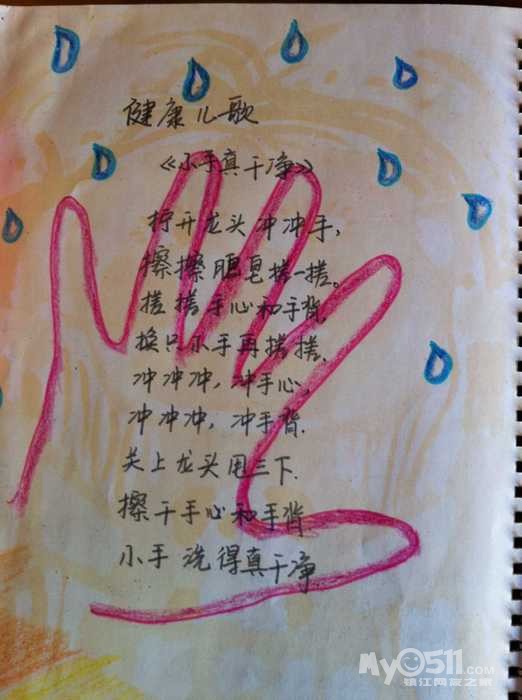 健康儿歌
《小手真干净》
拧开龙头冲冲手，
擦擦肥皂搓一搓。
搓搓手心和手背，
换只小手再搓搓，
冲冲冲，冲手心，
冲冲冲，冲手背.
关上龙头甩三下.
擦干手心和手背.
小手洗得真干净.
My0511.com
镇江网友之家